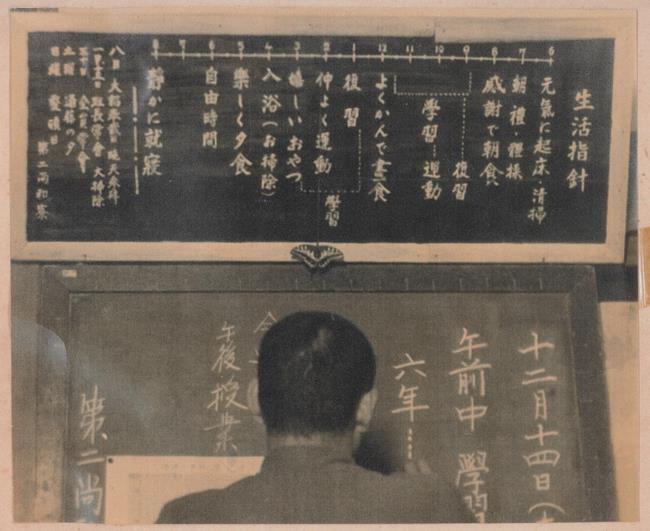 生活指針
6 7 8 9 10 11 12 1 2 3 4 5 6 7 8
元氣に起床・清掃
朝禮・體操
感謝で朝食
復習
學習・運動
よくかんで晝食
復習
學習
仲よく運動
嬉しいおやつ
入浴(お掃除)
樂しく夕食
自由時間
静かに就寝
八日 大詔奉戴日
大掃除
日曜 整頓日
第二尚和寮
十二月十四日(
午前中 學習
六年
午後 授業
第二尚